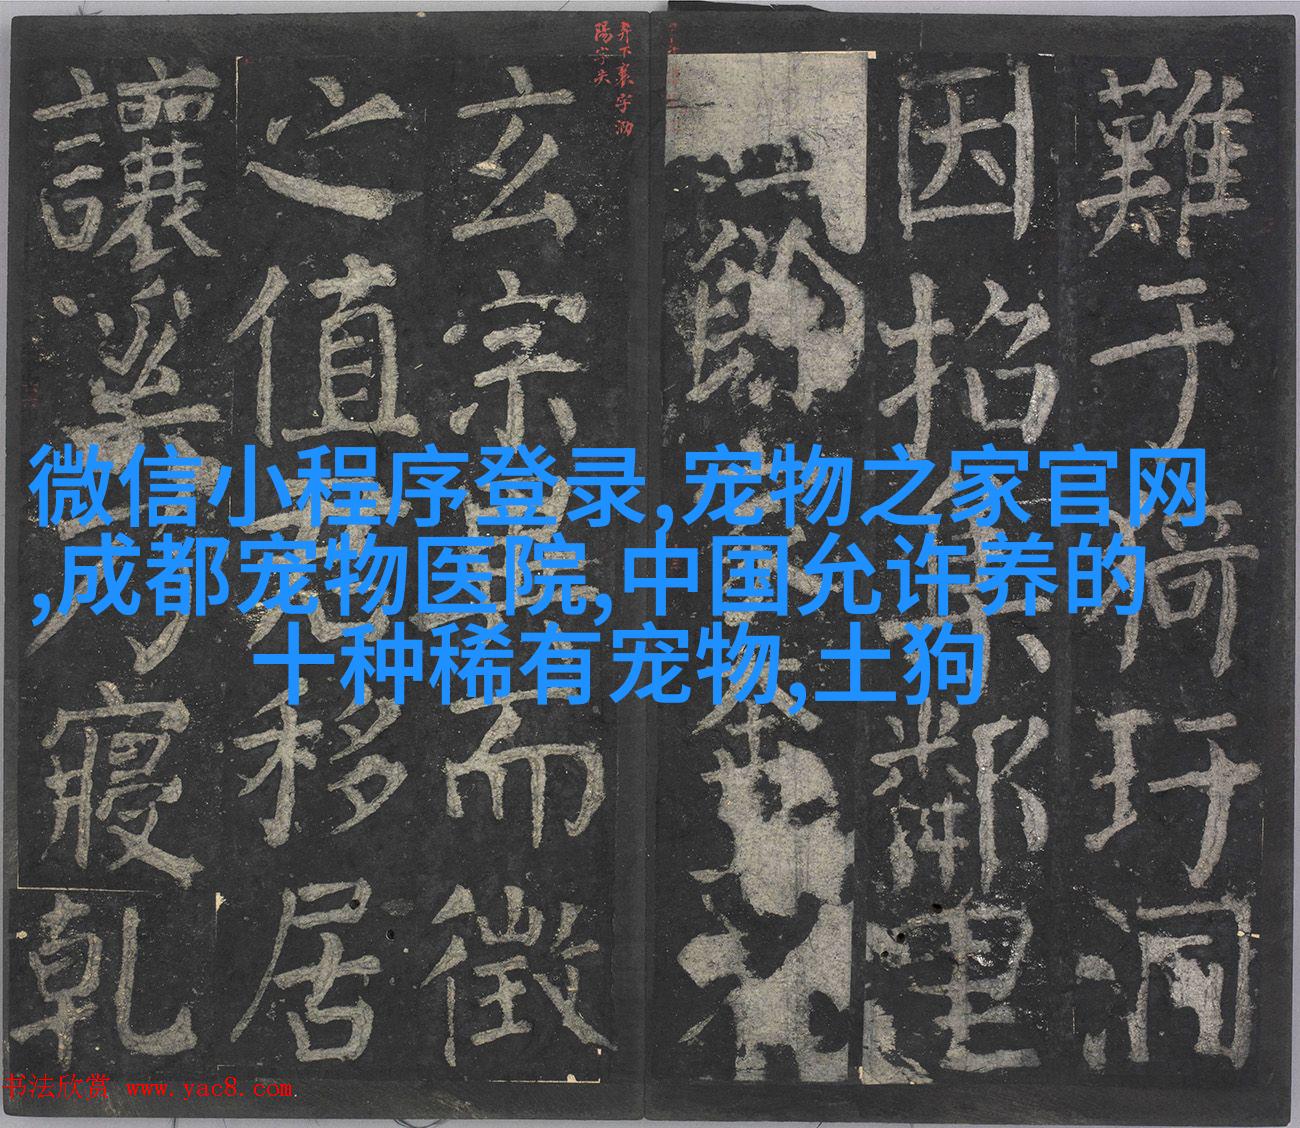 難于猗玗洞
因招集鄰里
玄宗異而徵
之值君移居
讓溪乃寢乾
微信小程序登录,宠物之家官网
,成都宠物医院,中国允许养的
十种稀有宠物,土狗
书法欣赏 www.yac8.com